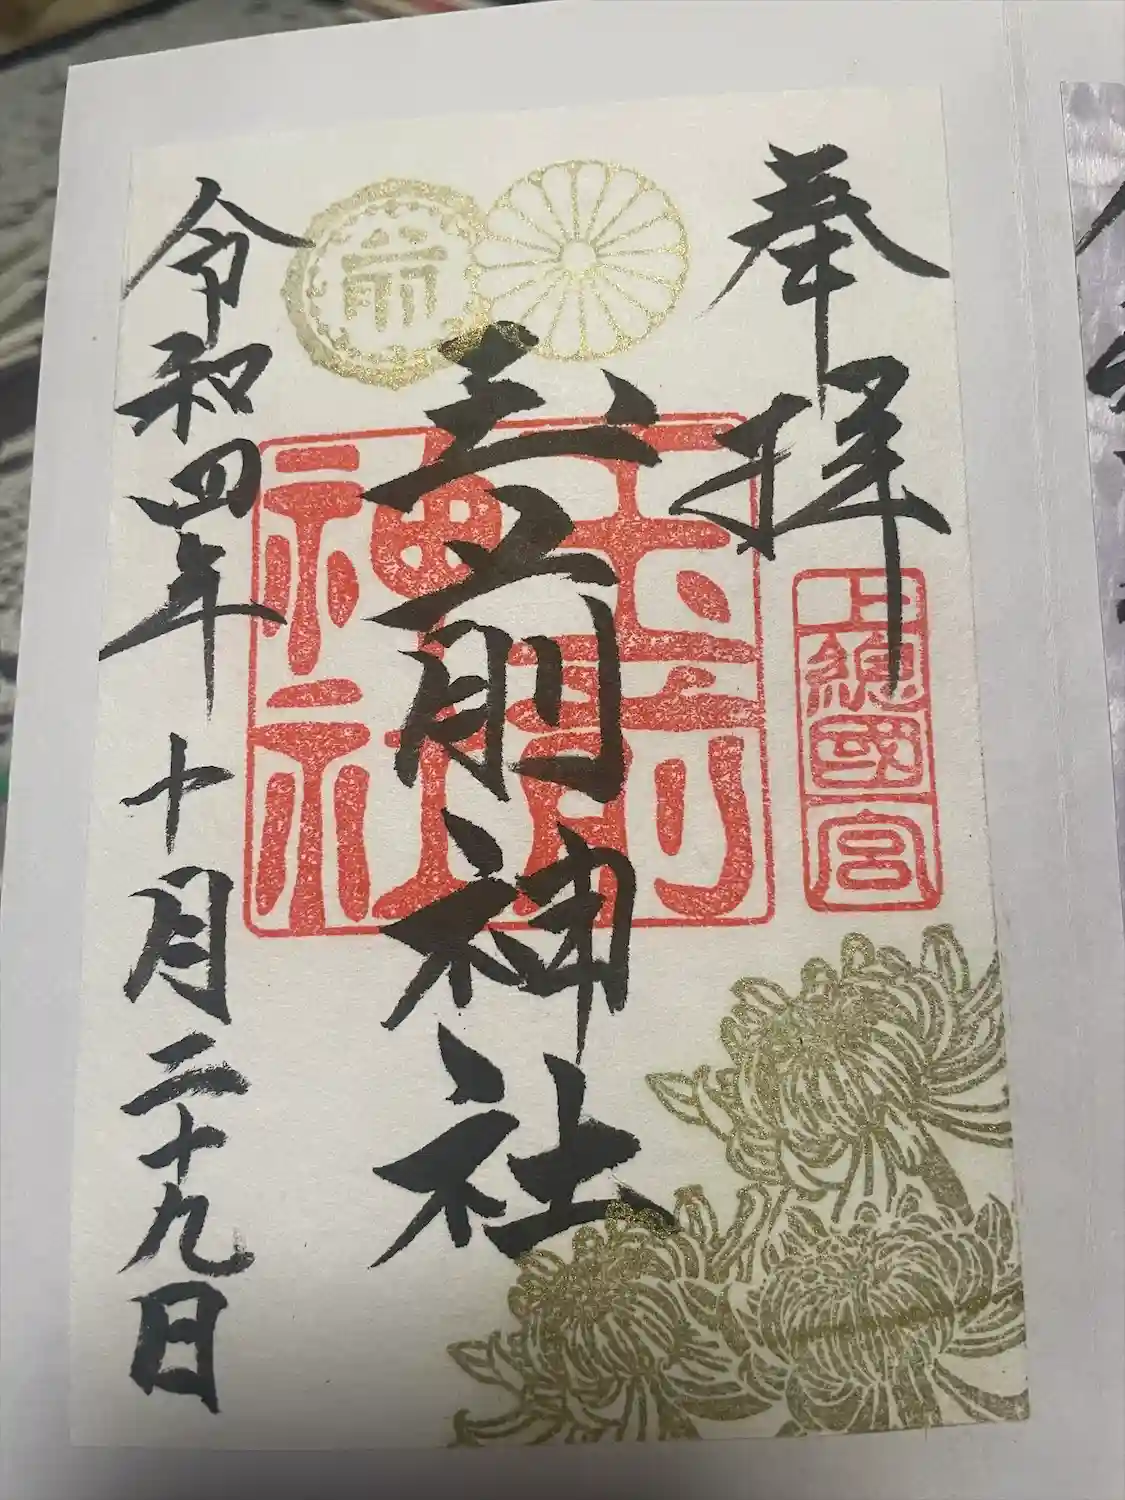 奉拝
上總國一宮
玉前神社
玉前
神社
令和四年十月二十九日